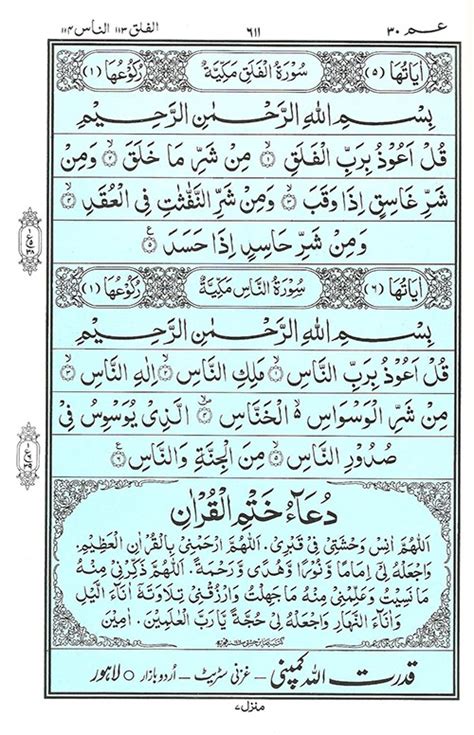 عم ٣٠ ٦١١ الفلق ١١٣ الناس ١١٤
اٰيَاتُهَا (٥) سُوْرَةُ الْفَلَقِ مَكِّيَّةٌ رُكُوْعُهَا (١)
بِسْمِ اللّٰهِ الرَّحْمٰنِ الرَّحِيْمِ
قُلْ اَعُوْذُ بِرَبِّ الْفَلَقِ ۙ۱ مِنْ شَرِّ مَا خَلَقَ ۙ۲ وَمِنْ
شَرِّ غَاسِقٍ اِذَا وَقَبَ ۙ۳ وَمِنْ شَرِّ النَّفّٰثٰتِ فِى الْعُقَدِ ۙ۴
وَمِنْ شَرِّ حَاسِدٍ اِذَا حَسَدَ ۵
اٰيَاتُهَا (٦) سُوْرَةُ النَّاسِ مَكِّيَّةٌ رُكُوْعُهَا (١)
بِسْمِ اللّٰهِ الرَّحْمٰنِ الرَّحِيْمِ
قُلْ اَعُوْذُ بِرَبِّ النَّاسِ ۙ۱ مَلِكِ النَّاسِ ۙ۲ اِلٰهِ النَّاسِ ۙ۳
مِنْ شَرِّ الْوَسْوَاسِ ۙ الْخَنَّاسِ ۙ۴ الَّذِىْ يُوَسْوِسُ فِىْ
صُدُوْرِ النَّاسِ ۙ۵ مِنَ الْجِنَّةِ وَالنَّاسِ ۶
دُعَآءُ خَتْمِ الْقُرْاٰنِ
اَللّٰهُمَّ اٰنِسْ وَحْشَتِىْ فِىْ قَبْرِىْ. اَللّٰهُمَّ ارْحَمْنِىْ بِالْقُرْاٰنِ الْعَظِيْمِ.
وَاجْعَلْهُ لِىْ اِمَامًا وَّنُوْرًا وَّهُدًى وَّرَحْمَةً. اَللّٰهُمَّ ذَكِّرْنِىْ مِنْهُ
مَا نَسِيْتُ وَعَلِّمْنِىْ مِنْهُ مَا جَهِلْتُ وَارْزُقْنِىْ تِلَاوَتَهٗ اٰنَآءَ الَّيْلِ
وَاٰنَآءَ النَّهَارِ وَاجْعَلْهُ لِىْ حُجَّةً يَّا رَبَّ الْعٰلَمِيْنَ. اٰمِيْن
قدرت اللہ کمپنی – غزنی سٹریٹ – اُردو بازار ○ لاہور
منزل ٧